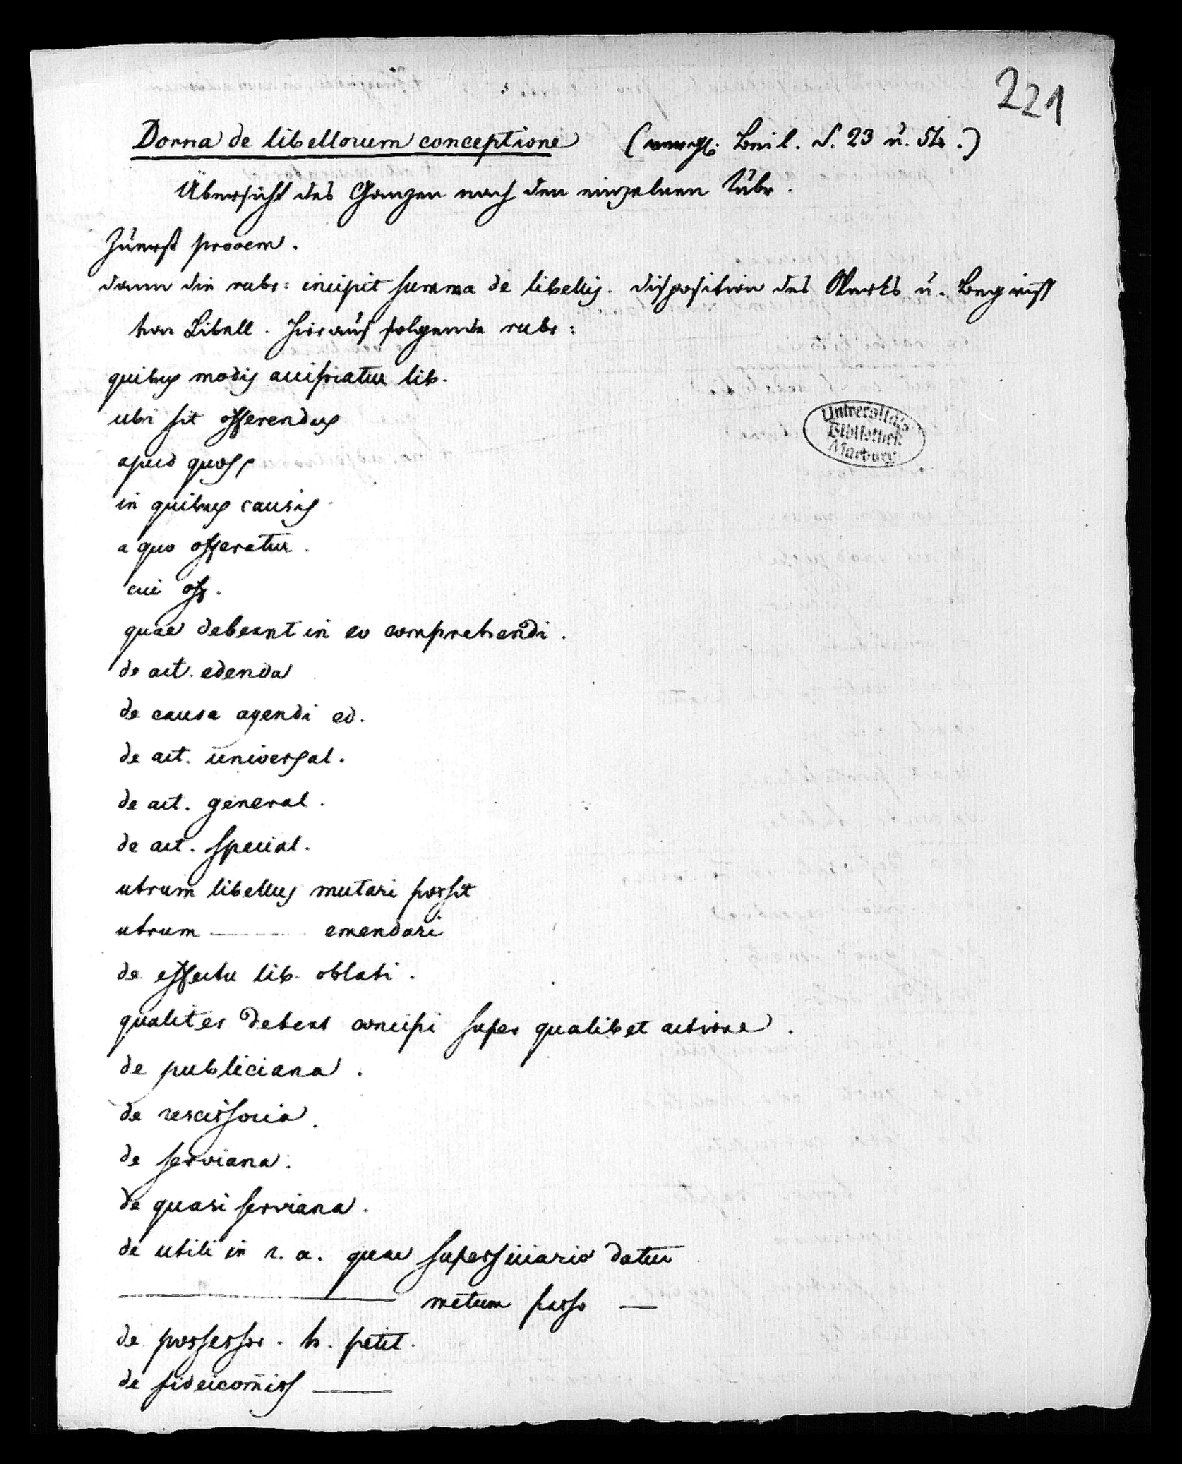 221
Dorna de libellorum conceptione (vergl. Beil. S. 23 u. 54.)
Übersicht des Ganzen nach den einzelnen Rubr.
Zuerst prooem.
dann die rubr: incipit summa de libellis. disposition des Werks u. Begriff
von Libell. Hierauf folgende rubr:
quibus modis accipiatur lib.
ubi sit offerendus
apud quos
in quibus causis
a quo offeratur.
cui off.
quae debeant in eo comprehendi.
de act. edenda
de causa agendi ed.
de act. universal.
de act. general.
de act. special.
utrum libellus mutari possit
utrum ——— emendari
de effectu lib. oblati.
qualiter debeat concipi super qualibet actione.
de publiciana.
de rescissoria.
de serviana.
de quasi serviana.
de utili in r. a. quae superficiario datur
——— metum passo —
de possessor. h. petit.
de fideicom̄iss ———
Universitäts
Bibliothek
Marburg